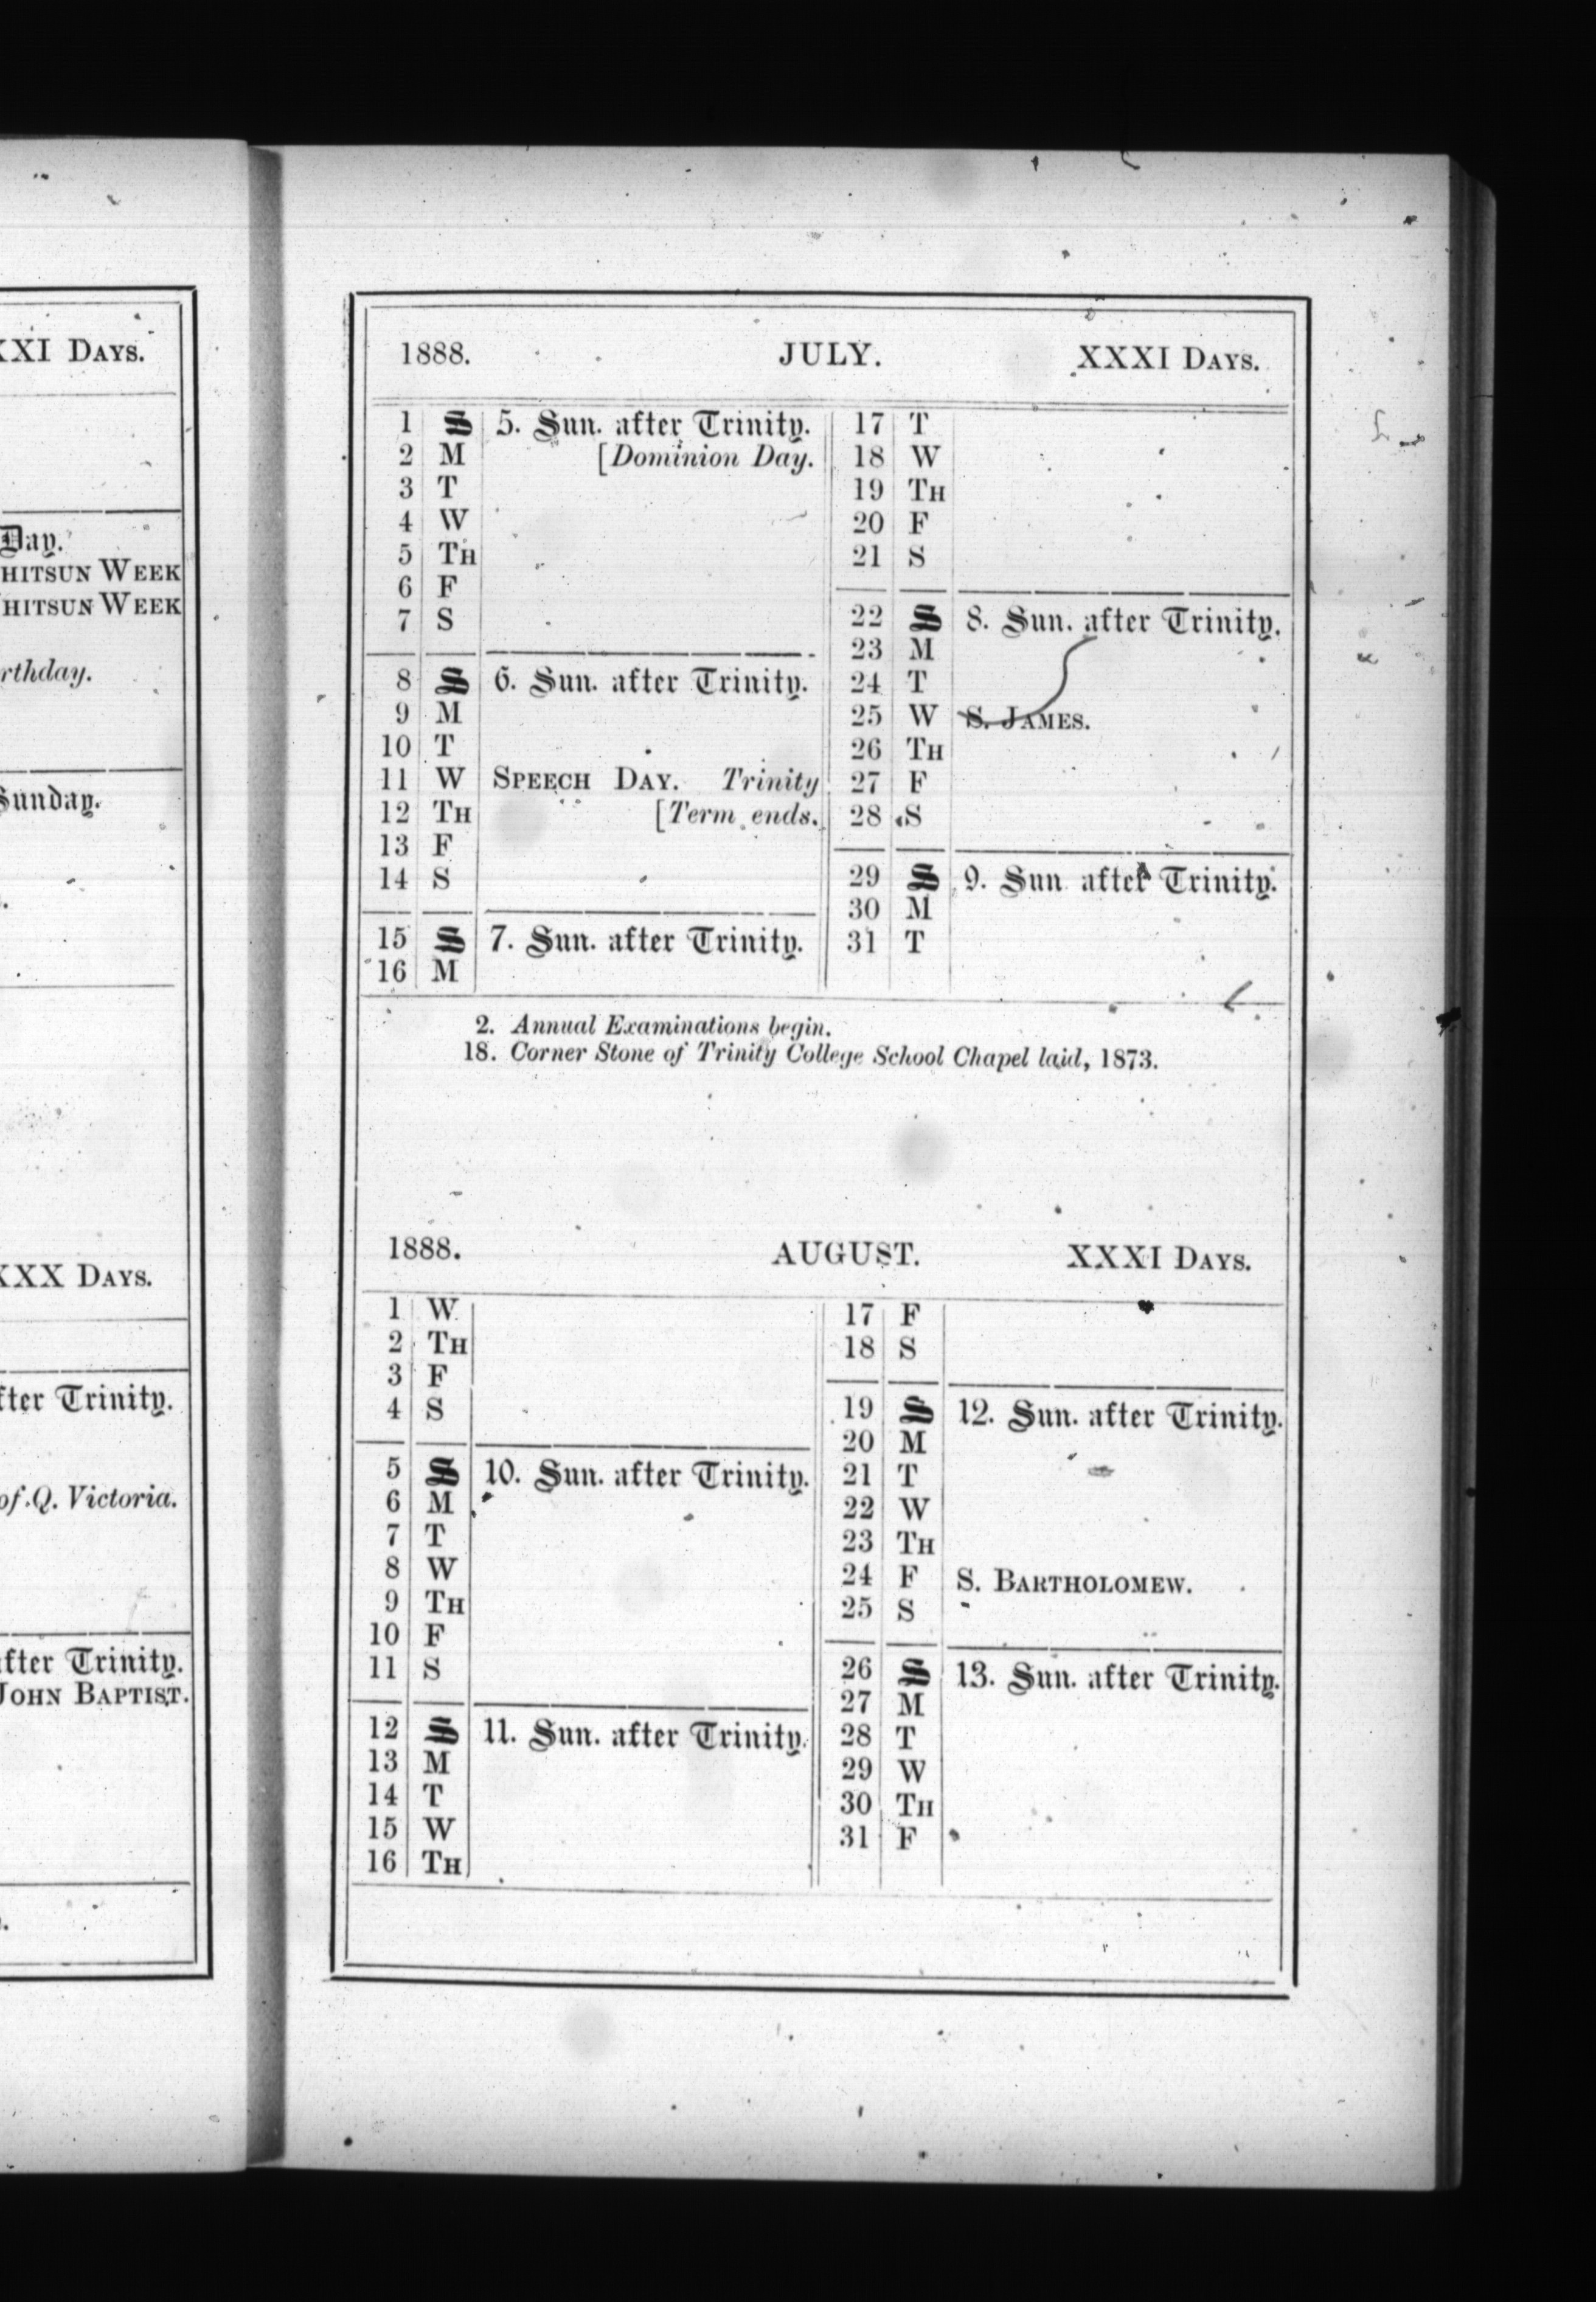 XXI DAYS.
Day.
HITSUN WEEK
HITSUN WEEK
rthday.
Sunday.
XXX DAYS.
fter Trinity.
of Q. Victoria.
fter Trinity.
JOHN BAPTIST.
1888. JULY. XXXI DAYS.
1 S 5. Sun. after Trinity.
2 M [Dominion Day.
3 T
4 W
5 TH
6 F
7 S
8 S 6. Sun. after Trinity.
9 M
10 T
11 W SPEECH DAY. Trinity
12 TH [Term ends.
13 F
14 S
15 S 7. Sun. after Trinity.
16 M
17 T
18 W
19 TH
20 F
21 S
22 S 8. Sun. after Trinity.
23 M
24 T
25 W S. JAMES.
26 TH
27 F
28 S
29 S 9. Sun after Trinity.
30 M
31 T
2. Annual Examinations begin.
18. Corner Stone of Trinity College School Chapel laid, 1873.
1888. AUGUST. XXXI DAYS.
1 W
2 TH
3 F
4 S
5 S 10. Sun. after Trinity.
6 M
7 T
8 W
9 TH
10 F
11 S
12 S 11. Sun. after Trinity.
13 M
14 T
15 W
16 TH
17 F
18 S
19 S 12. Sun. after Trinity.
20 M
21 T
22 W
23 TH
24 F S. BARTHOLOMEW.
25 S
26 S 13. Sun. after Trinity.
27 M
28 T
29 W
30 TH
31 F